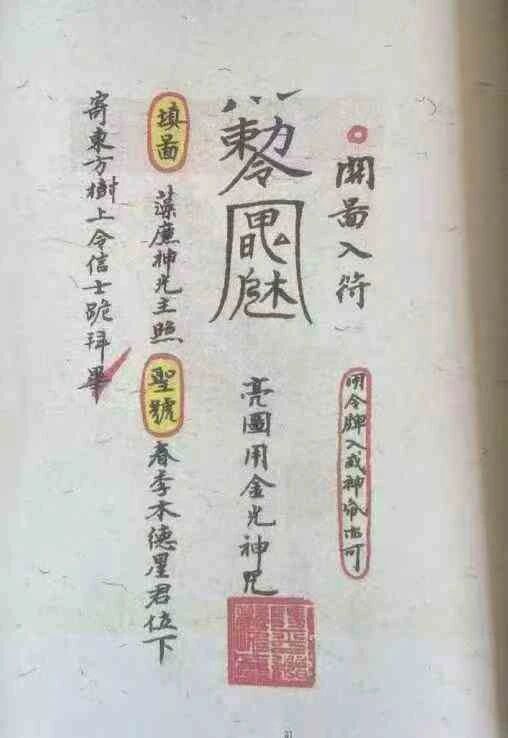 開啚入符
用令牌入或神
勅令
亮圖用金光神咒
填啚
神光主照
聖號
春季木德星君位下
寄東方樹上令信士跪拜畢